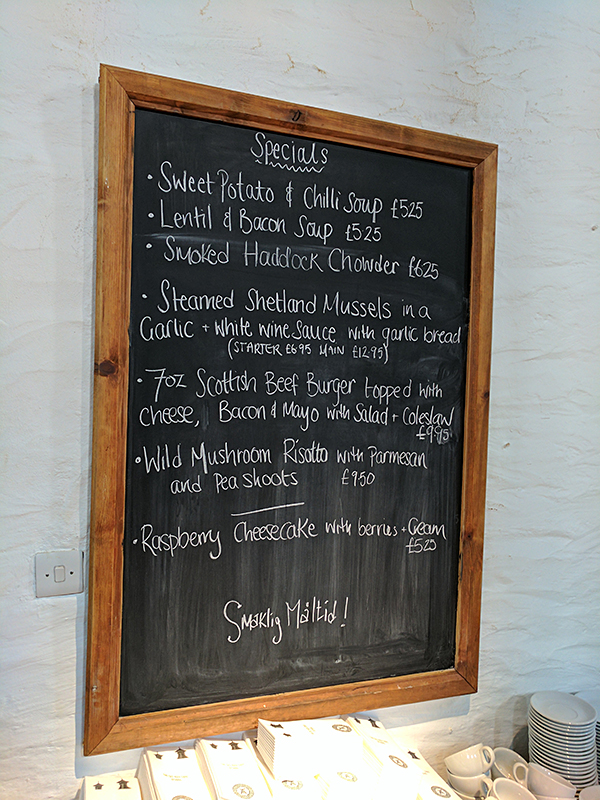 Specials
• Sweet Potato & Chilli Soup £525
• Lentil & Bacon Soup £525
• Smoked Haddock Chowder £625
• Steamed Shetland Mussels in a
Garlic + White wine Sauce with garlic bread
(STARTER £6.95 MAIN £12.95)
• 7oz Scottish Beef Burger topped with
cheese, Bacon & Mayo with Salad + Coleslaw
£9.95
• Wild Mushroom Risotto with Parmesan
and Pea shoots £950
• Raspberry Cheesecake with berries + Cream
£525
Smaklig Måltid!